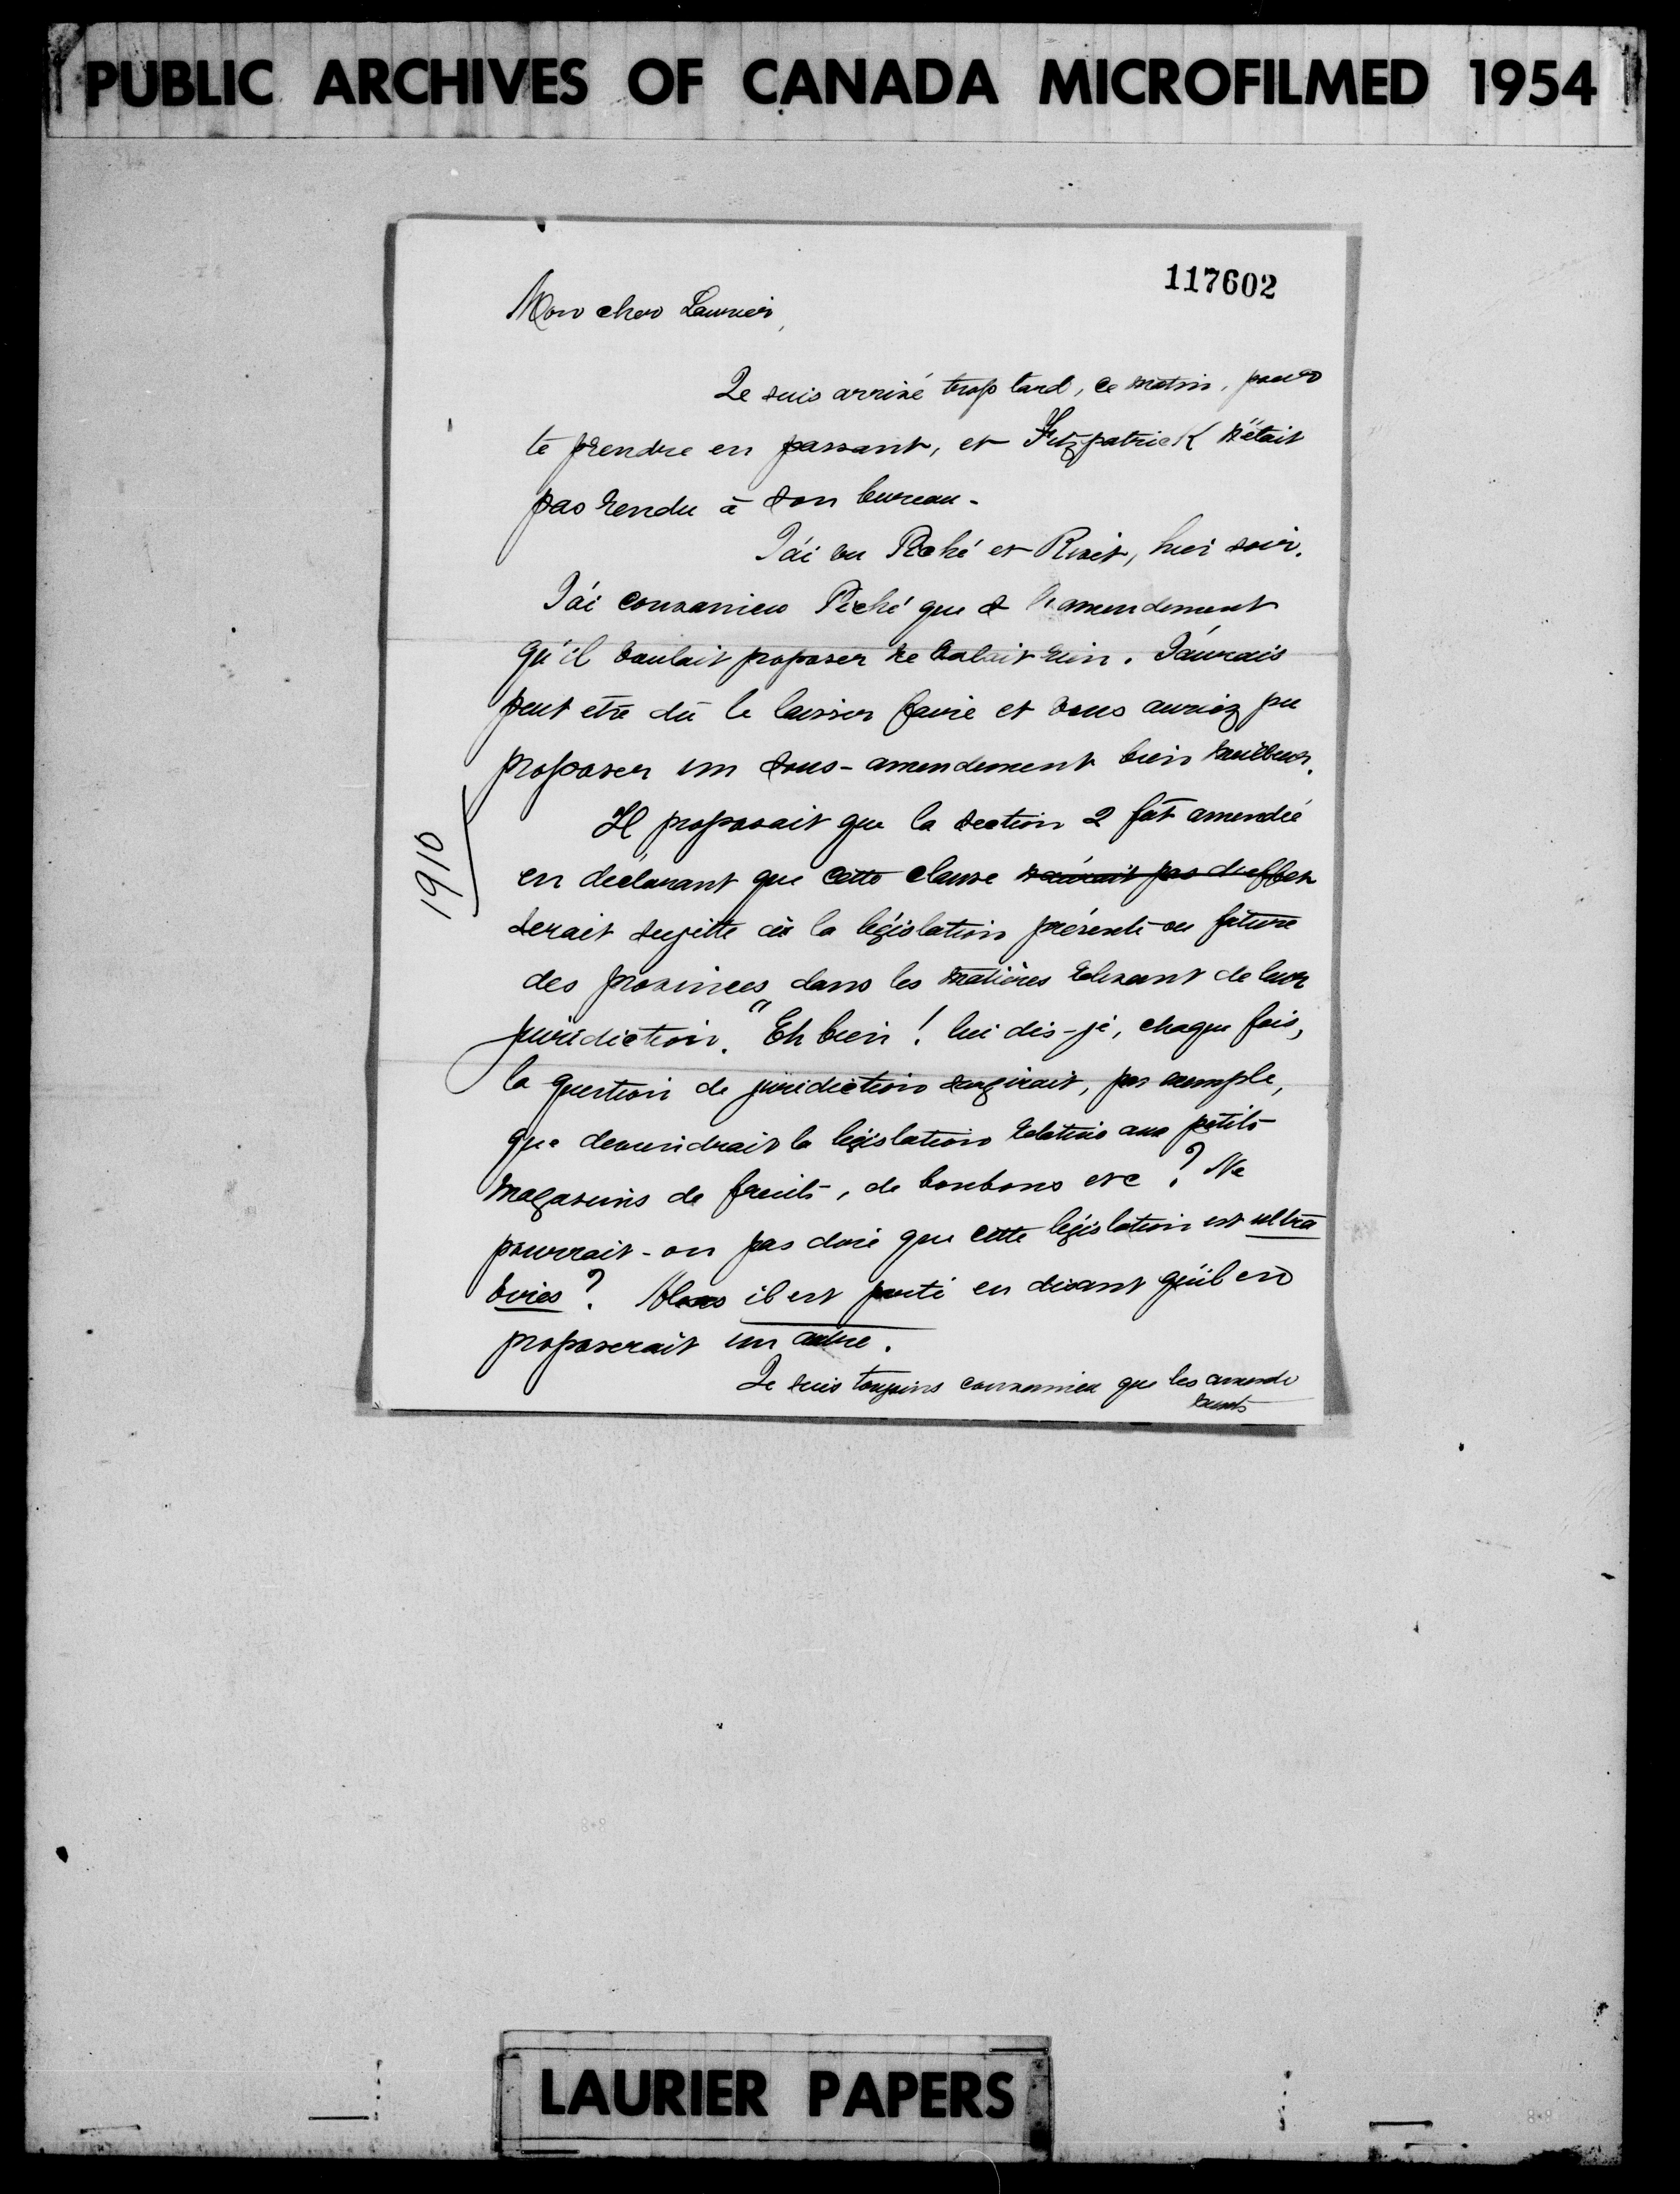 PUBLIC ARCHIVES OF CANADA MICROFILMED 1954
117602
Mon cher Laurier,
Je suis arrivé trop tard, ce matin, pour
te prendre en passant, et Fitzpatrick n'était
pas rendu à son bureau.
J'ai vu Piché et Rivet, hier soir.
J'ai convaincu Piché que l'amendement
qu'il voulait proposer ne valait rien. J'aurais
peut etre dû le laisser faire et vous auriez pu
proposer un sous-amendement bien meilleur.
Il proposait que la section 2 fût amendée
en déclarant que cette clause n'aurait pas d'effet
serait sujette à la législation présente ou future
des provinces dans les matières relevant de leur
juridiction. "Eh bien! lui dis-je, chaque fois,
la question de juridiction surgirait, par exemple,
que deviendrait la législation relative aux petits
magasins de fruits, de bonbons etc? Ne
pourrait-on pas dire que cette législation est ultra
vires? Alors il est parti en disant qu'il en
proposerait un autre.
Je suis toujours convaincu que les amende
ments
1910
LAURIER PAPERS